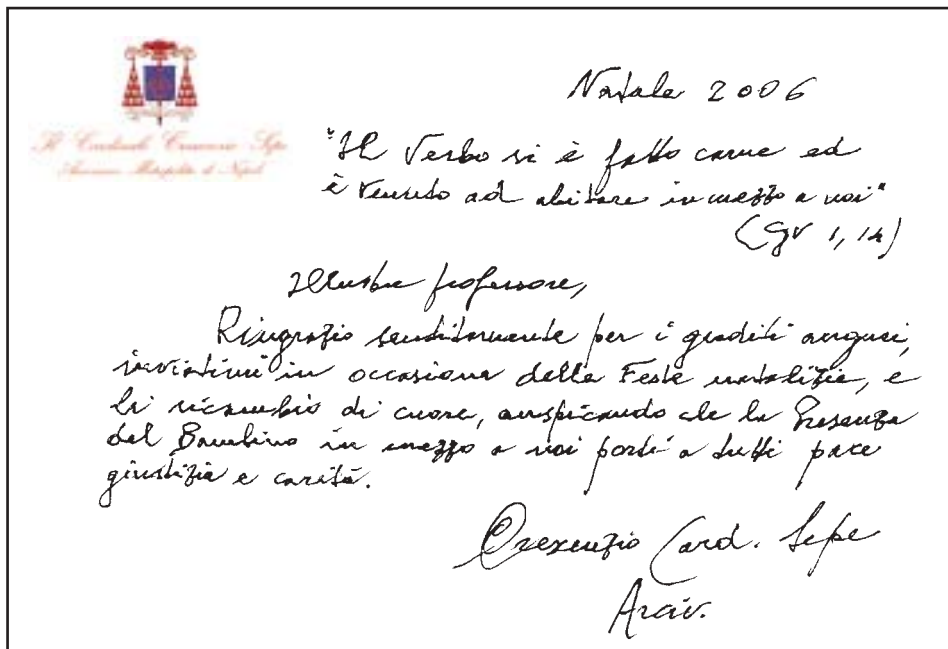 Natale 2006
Il Cardinale Crescenzio Sepe
Arcivescovo Metropolita di Napoli
"Il Verbo si è fatto carne ed
è venuto ad abitare in mezzo a noi"
(Gv 1,14)
Illustre professore,
Ringrazio sentitamente per i graditi auguri,
inviatimi in occasione delle Feste natalizie, e
li ricambio di cuore, auspicando che la Presenza
del Bambino in mezzo a noi porti a tutti pace
giustizia e carità.
Crescenzio Card. Sepe
Arciv.